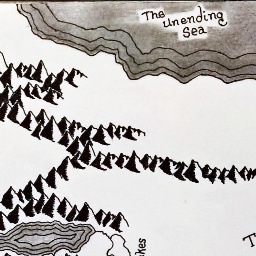 The
Unending
Sea